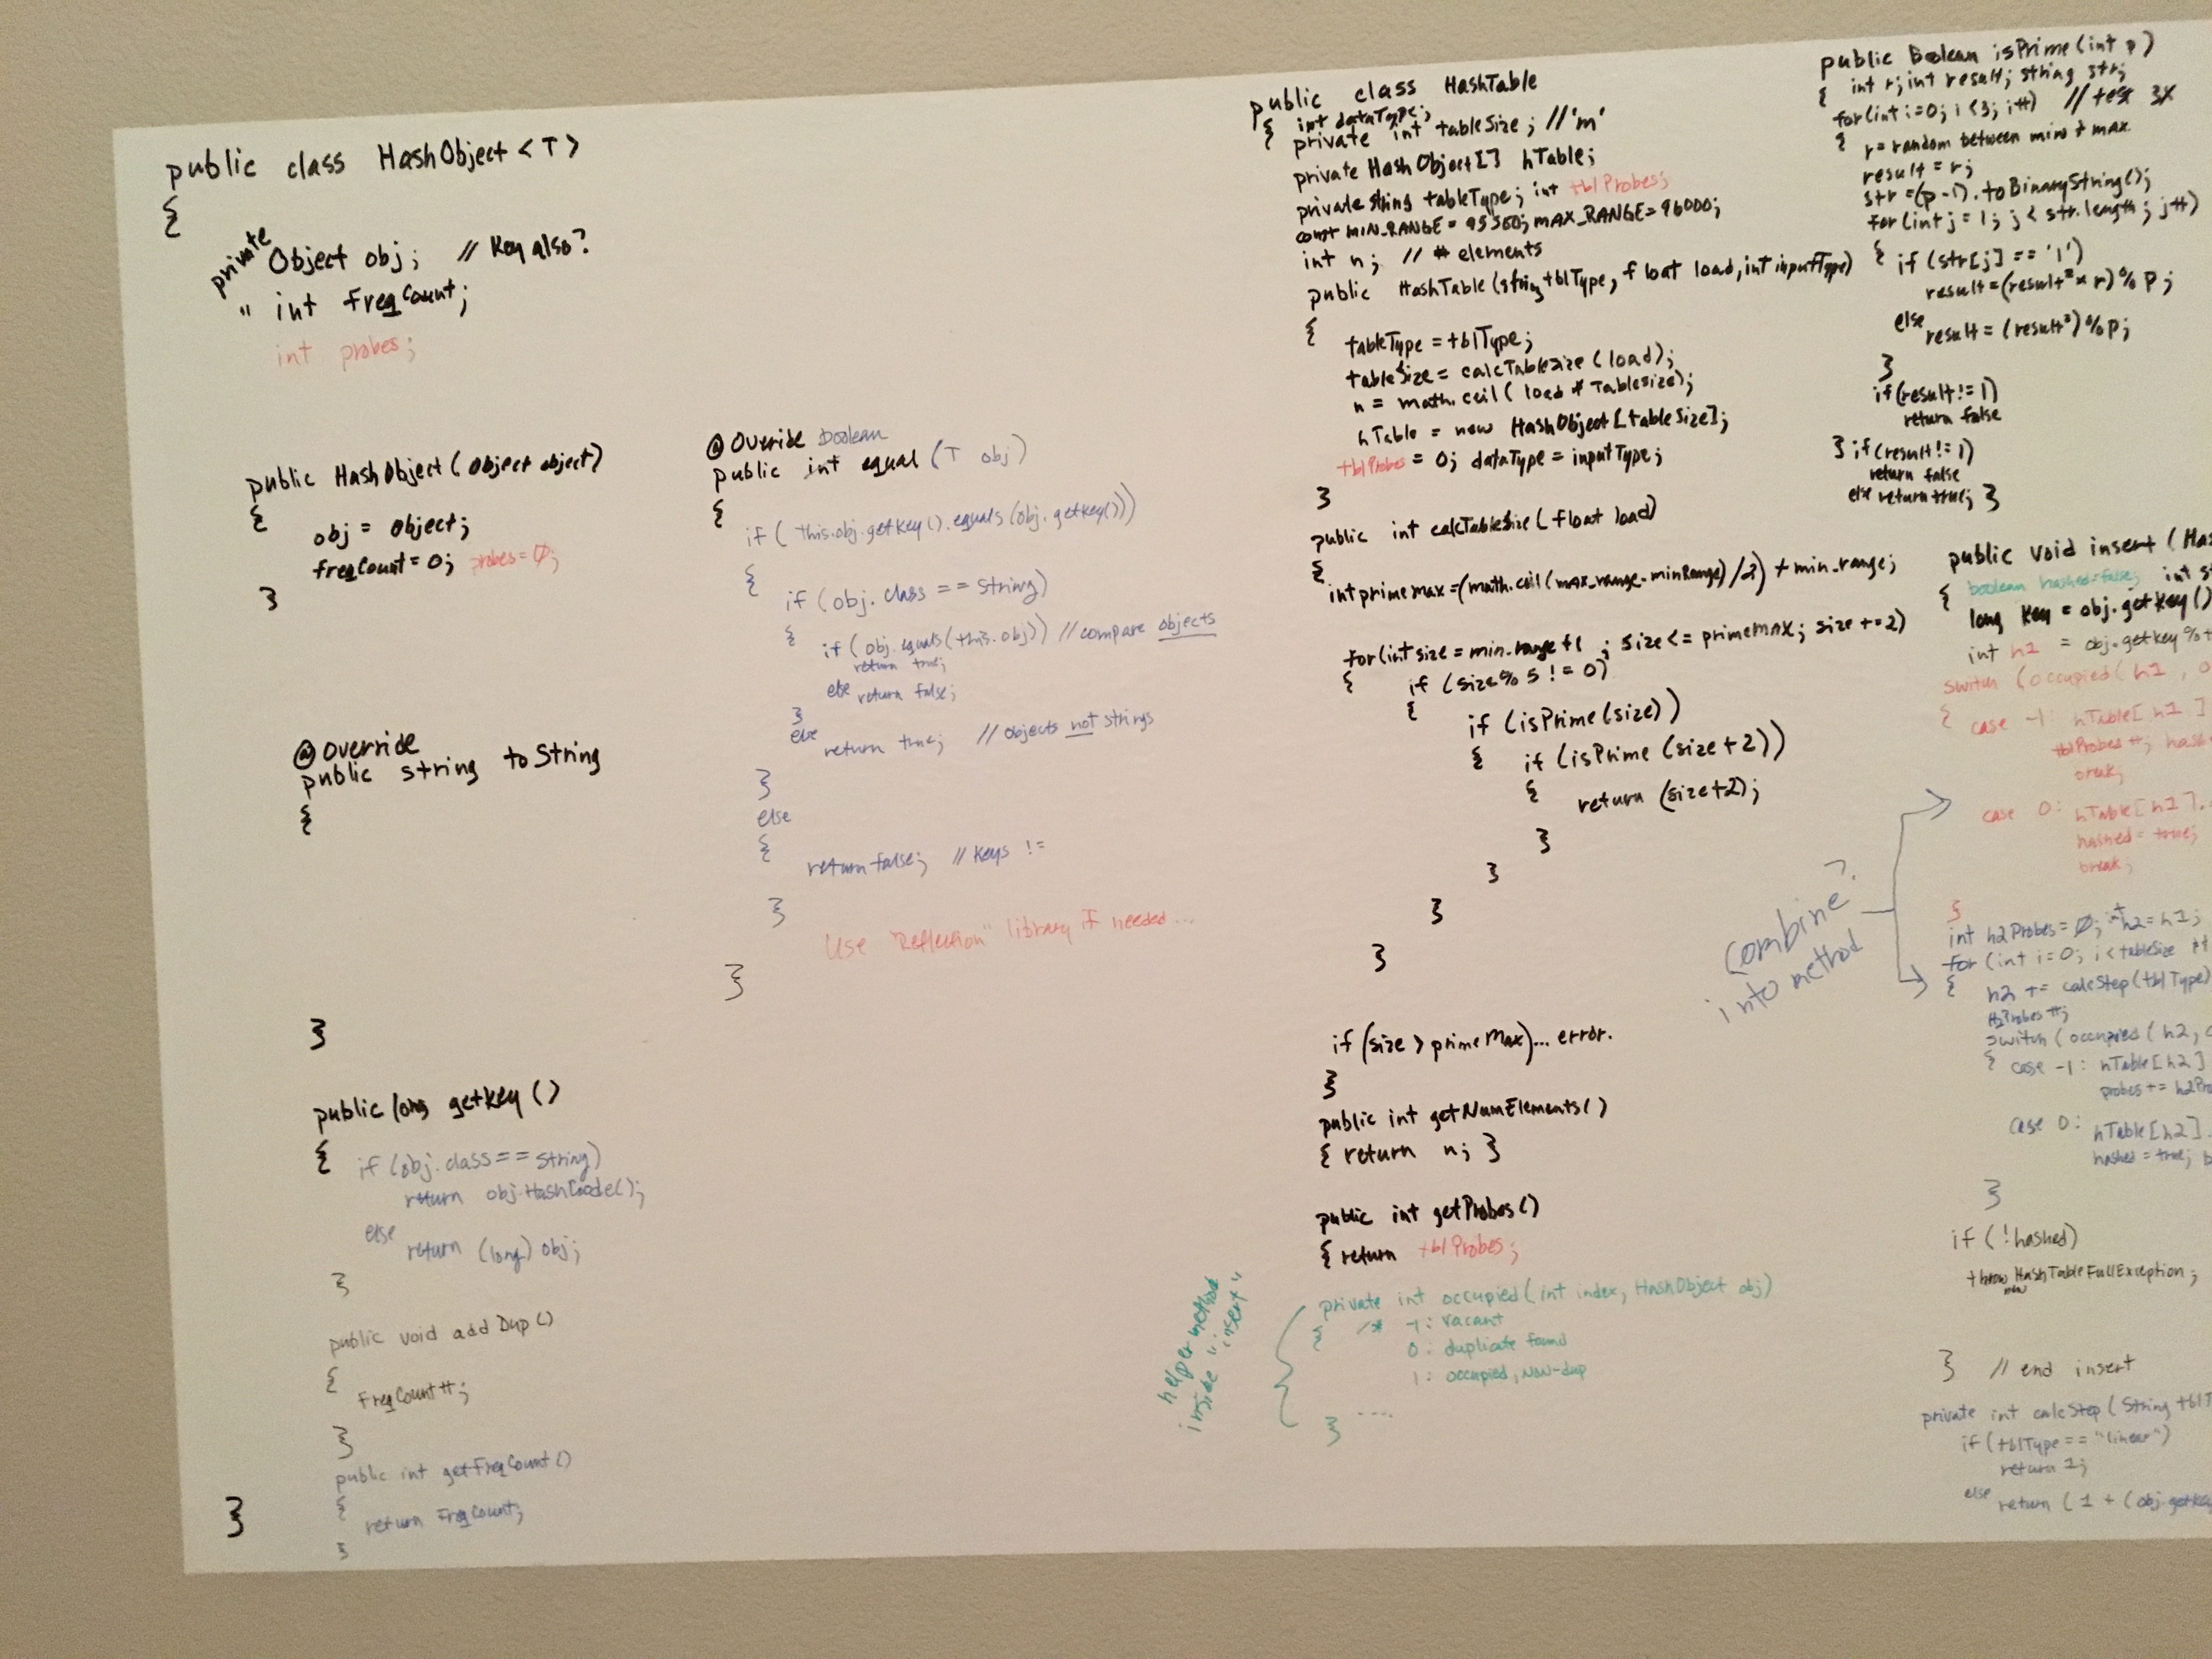 public class HashObject <T>
{
private Object obj; // Key also?
" int freqCount;
int probes;
public HashObject (Object object)
{
obj = object;
freqCount = 0; probes = 0;
}
@Override
public string toString
{
}
public long getKey ()
{
if (obj.class == String)
return obj.HashCode();
else
return (long) obj;
}
public void addDup ()
{
freqCount++;
}
public int getFreqCount ()
{
return FreqCount;
}
}
@Override boolean
public int equal (T obj)
{
if ( this.obj.getKey().equals(obj.getKey()))
{
if (obj.class == String)
{ if (obj.equals(this.obj)) // compare objects
return true;
else return false;
}
else
return true; // objects not strings
}
else
{
return false; // Keys !=
}
Use "Reflection" library if needed...
}
public class HashTable
{ int dataType;
private int tableSize; // 'm'
private HashObject[] hTable;
private string tableType; int tblProbes;
const MIN_RANGE = 95500; MAX_RANGE = 96000;
int n; // # elements
public HashTable (string tblType, float load, int inputType)
{
tableType = tblType;
tableSize = calcTableSize (load);
n = math.ceil( load * Tablesize);
hTable = new HashObject [tableSize];
tblProbes = 0; dataType = inputType;
}
public int calcTableSize (float load)
{
int prime max = (math.ceil (max_range - minRange) / 2) + min_range;
for (int size = min_range + 1 ; size <= primeMAX; size += 2)
{ if (size % 5 != 0)
{ if (isPrime (size))
{ if (isPrime (size+2))
{ return (size+2);
}
}
}
}
if (size > primeMax)... error.
}
public int getNumElements()
{ return n; }
public int getProbes()
{ return tblProbes;
helper method
inside "insert"
private int occupied (int index, HashObject obj)
{ /* -1: vacant
0: duplicate found
1: occupied, NON-dup
} ....
public Boolean isPrime (int p)
{ int r; int result; string str;
for (int i=0; i<3; i++) // test 3X
{ r = random between min + max.
result = r;
str = (p-1).toBinaryString();
for (int j = 1; j < str.length; j++)
{ if (str[j] == '1')
result = (result² × r) % p;
else result = (result²) % p;
}
if (result != 1)
return false
} if (result != 1)
return false
else return true; }
public void insert (Has
{ boolean hashed = false; int s
long key = obj.getKey()
int h1 = obj.getKey % t
switch (occupied (h1, o
{ case -1: hTable[h1]
tblProbes++; hash
break;
case 0: hTable[h1].
hashed = true;
break;
}
combine?
into method
int h2Probes = 0; int h2 = h1;
for (int i=0; i < tableSize
{ h2 += calcStep (tblType)
H2Probes++;
switch (occupied (h2,
{ case -1: hTable[h2]
probes += h2Pro
case 0: hTable[h2].
hashed = true; b
}
if (!hashed)
throw new HashTableFullException;
} // end insert
private int calcStep (String tblT
if (tblType == "linear")
return 1;
else return (1 + (obj.getKey